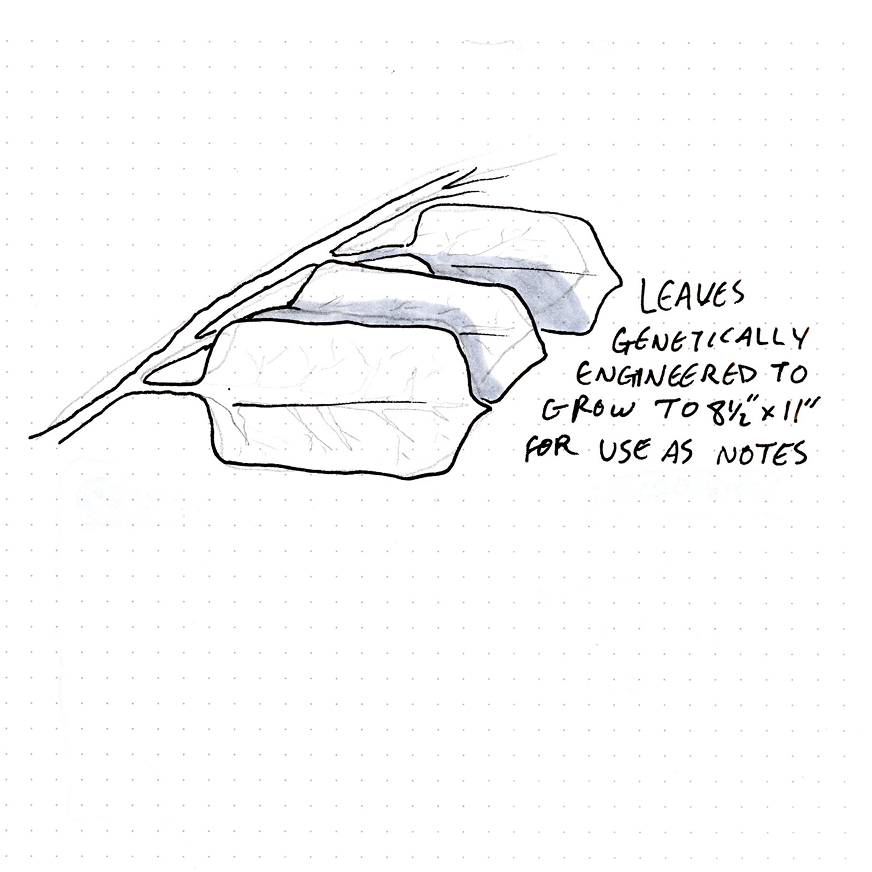 LEAVES
GENETICALLY
ENGINEERED TO
GROW TO 8½" x 11"
FOR USE AS NOTES